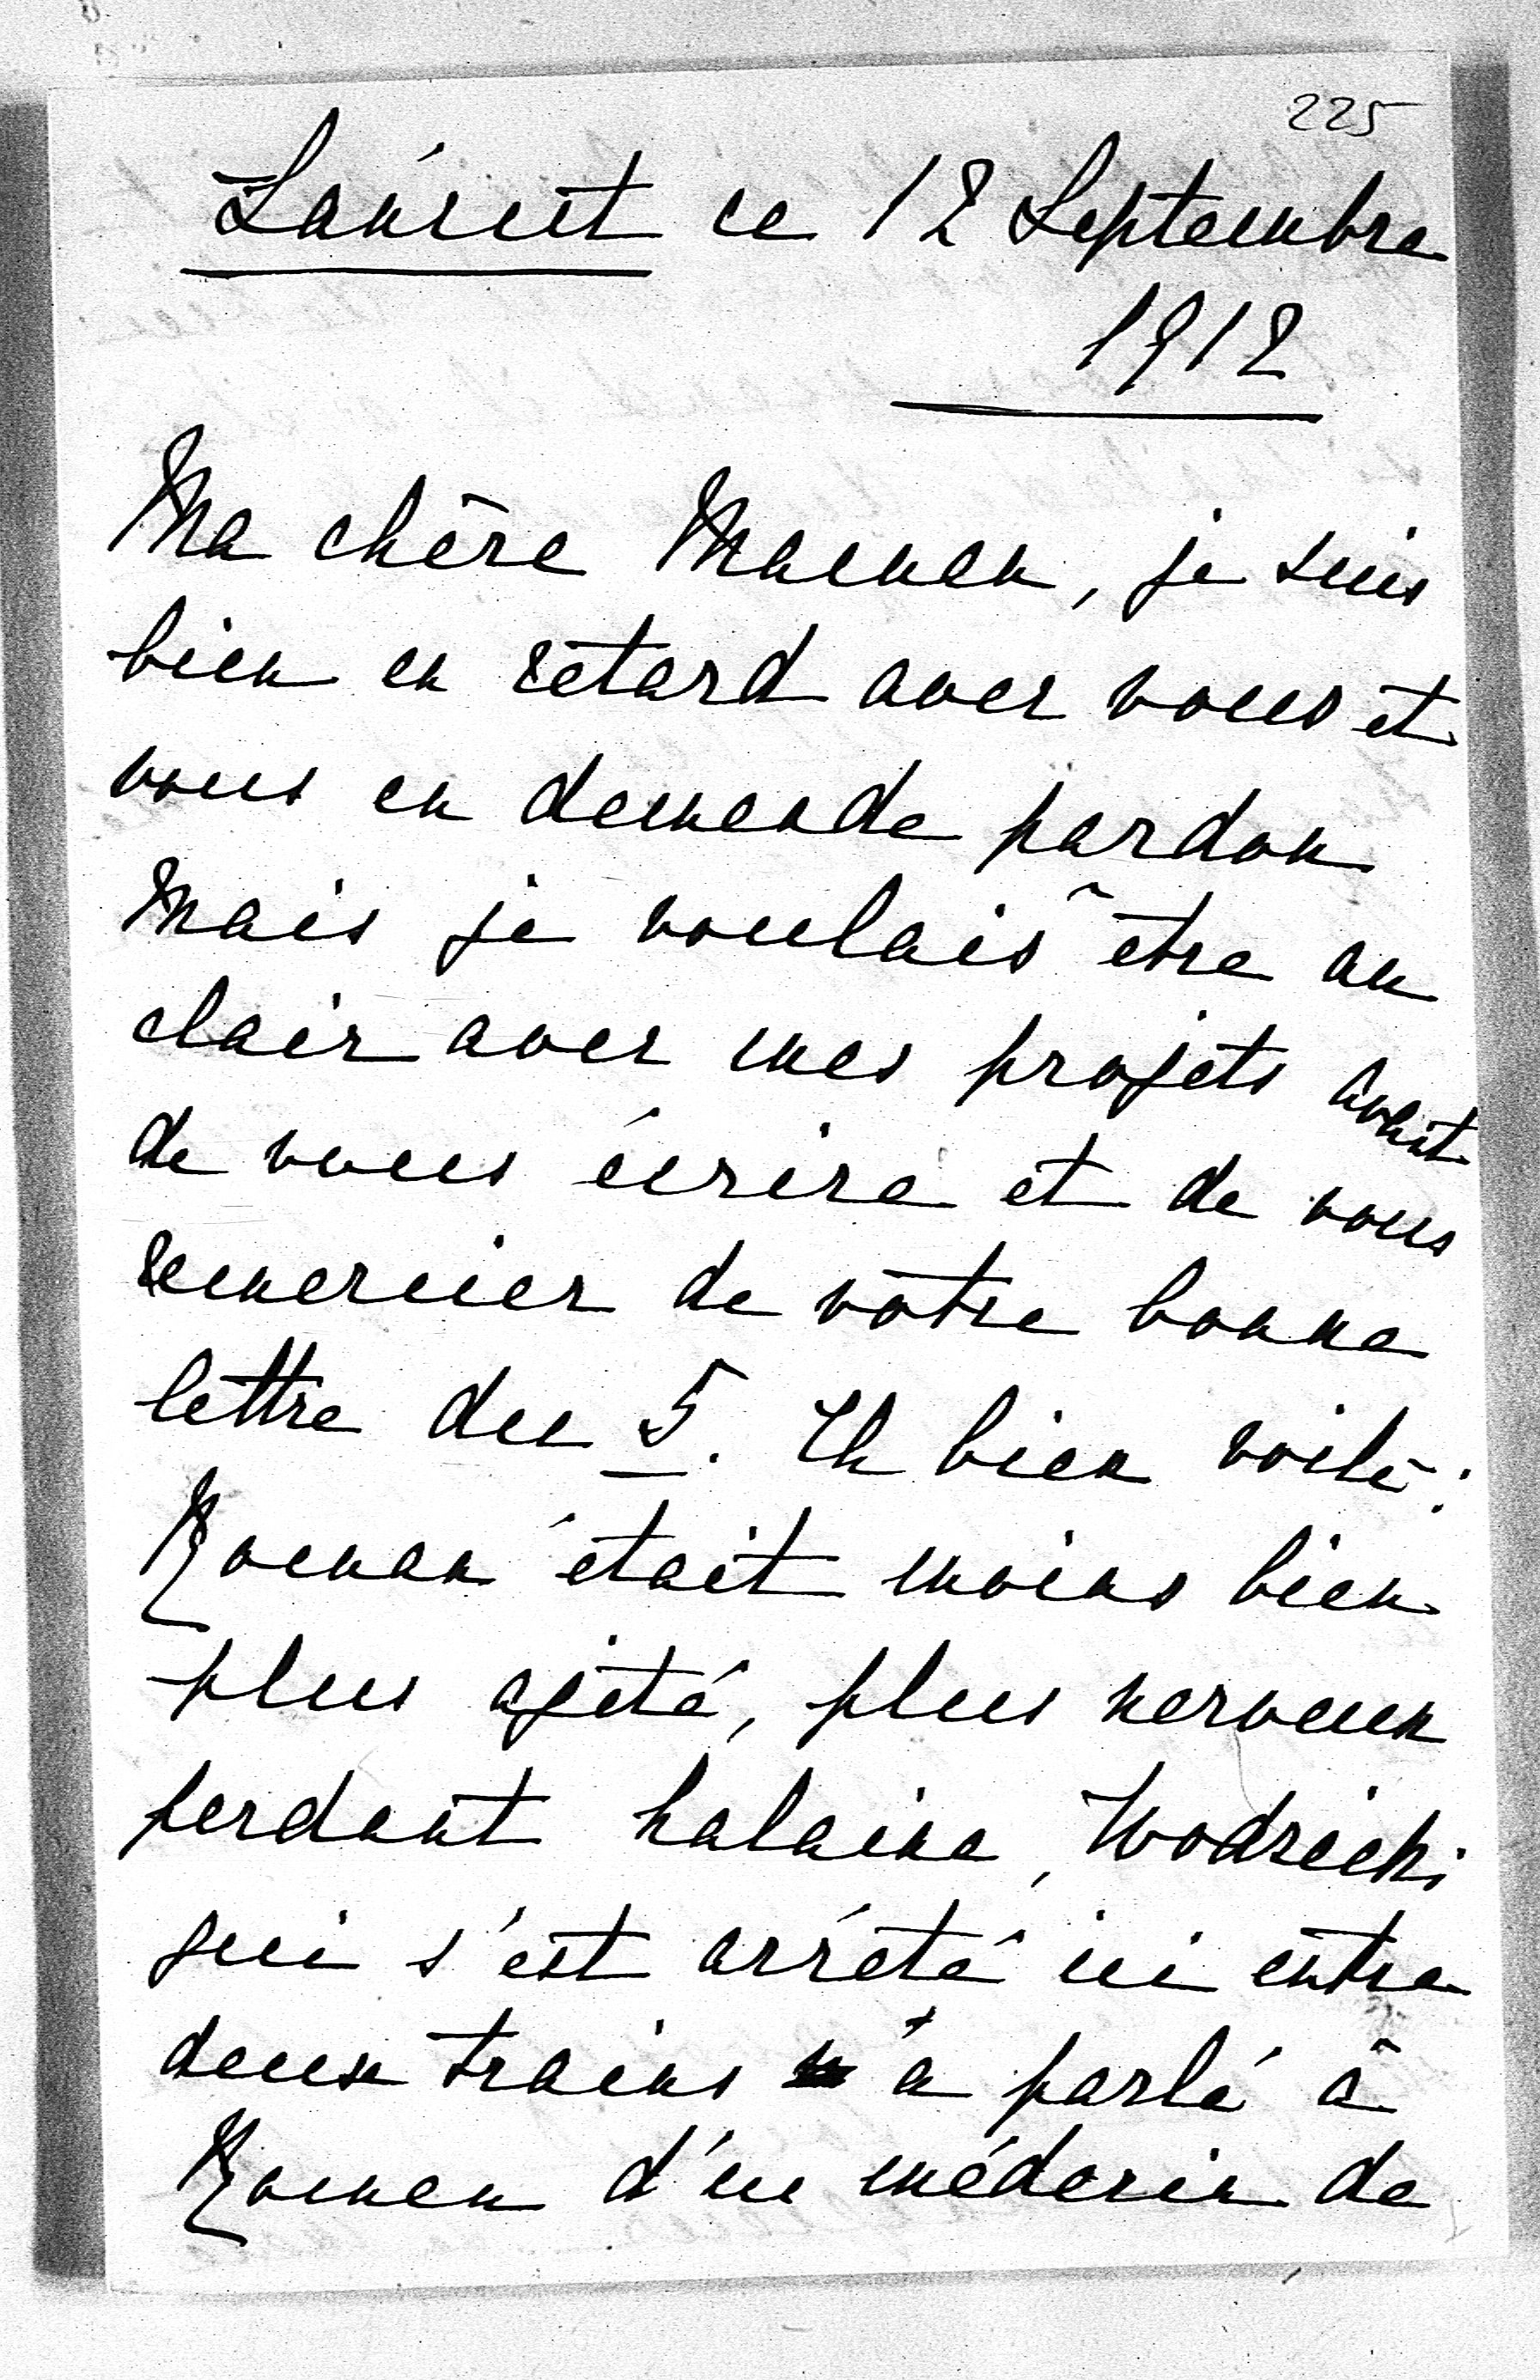 225
Łańcut ce 12 Septembre
1912
Ma chère Maman, je suis
bien en retard avec vous et
vous en demande pardon
Mais je voulais être au
clair avec mes projets avant
de vous écrire et de vous
remercier de votre bonne
lettre du 5. Eh bien voilà:
Roman était moins bien
plus agité, plus nerveux
perdant halaine, Wodzicki
qui s'est arrêté ici entre
deux trains a parlé à
Roman d'un médecin de